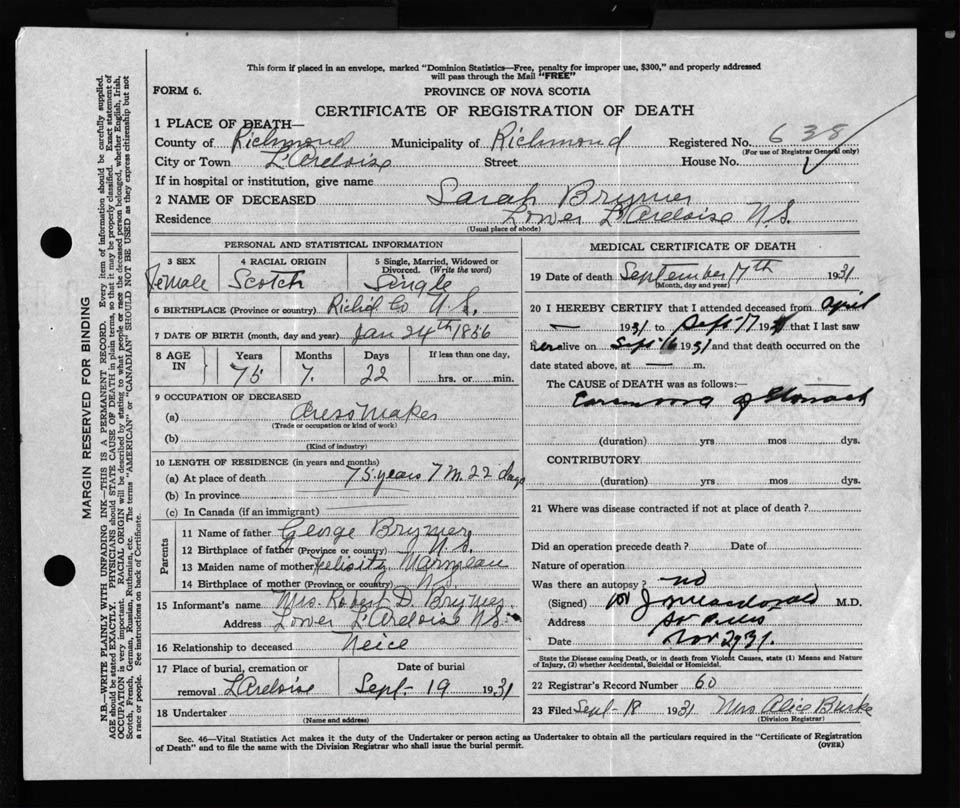 This form if placed in an envelope, marked "Dominion Statistics—Free, penalty for improper use, $300," and properly addressed
will pass through the Mail "FREE"
FORM 6.
PROVINCE OF NOVA SCOTIA
CERTIFICATE OF REGISTRATION OF DEATH
1 PLACE OF DEATH—
County of Richmond Municipality of Richmond Registered No. 638
(For use of Registrar General only)
City or Town L'Ardoise Street House No.
If in hospital or institution, give name
2 NAME OF DECEASED Sarah Brymer
Residence Lower L'Ardoise N.S.
(Usual place of abode)
PERSONAL AND STATISTICAL INFORMATION
3 SEX 4 RACIAL ORIGIN 5 Single, Married, Widowed or
Divorced. (Write the word)
Female Scotch Single
6 BIRTHPLACE (Province or country) Richd Co N.S.
7 DATE OF BIRTH (month, day and year) Jan 24th 1856
8 AGE IN Years Months Days If less than one day,
75 7. 22 hrs. or min.
9 OCCUPATION OF DECEASED
(a) dressmaker
(Trade or occupation or kind of work)
(b)
(Kind of industry)
10 LENGTH OF RESIDENCE (in years and months)
(a) At place of death 75 years 7 M. 22 days
(b) In province
(c) In Canada (if an immigrant)
Parents
11 Name of father George Brymer
12 Birthplace of father (Province or country) N.S.
13 Maiden name of mother Marmeau
14 Birthplace of mother (Province or country) N.S.
15 Informant's name Mrs. Robert D. Brymer
Address Lower L'Ardoise N.S.
16 Relationship to deceased Neice
17 Place of burial, cremation or Date of burial
removal L'Ardoise Sept- 19 1931
18 Undertaker
(Name and address)
MEDICAL CERTIFICATE OF DEATH
19 Date of death September 17th 1931
(Month, day and year)
20 I HEREBY CERTIFY that I attended deceased from April
— 1931 to Sept 17 193 that I last saw
her alive on Sept 16 1931 and that death occurred on the
date stated above, at — m.
The CAUSE of DEATH was as follows:—
Carcinoma of Stomach
(duration) yrs mos dys.
CONTRIBUTORY
(duration) yrs. mos. dys.
21 Where was disease contracted if not at place of death?
Did an operation precede death? Date of
Nature of operation
Was there an autopsy? no
(Signed) M.D.
Address St Peters
Date Nov 29 31.
State the Disease causing Death, or in death from Violent Causes, state (1) Means and Nature
of Injury, (2) whether Accidental, Suicidal or Homicidal.
22 Registrar's Record Number 60
23 Filed Sept- 18 1931 Mrs Alice Burke
(Division Registrar)
Sec. 46—Vital Statistics Act makes it the duty of the Undertaker or person acting as Undertaker to obtain all the particulars required in the "Certificate of Registration
of Death" and to file the same with the Division Registrar who shall issue the burial permit.
(OVER)
MARGIN RESERVED FOR BINDING
N.B.—WRITE PLAINLY WITH UNFADING INK—THIS IS A PERMANENT RECORD. Every item of information should be carefully supplied.
AGE should be stated EXACTLY. PHYSICIANS should STATE CAUSE OF DEATH in plain terms, so that it may be properly classified. Exact statement of
OCCUPATION is very important. RACIAL ORIGIN will be described by stating to what people or race the deceased person belonged, whether English, Irish,
Scotch, French, German, Russian, Ruthenian, etc. The terms "AMERICAN" or "CANADIAN" SHOULD NOT BE USED as they express citizenship but not
a race or people. See instructions on back of Certificate.